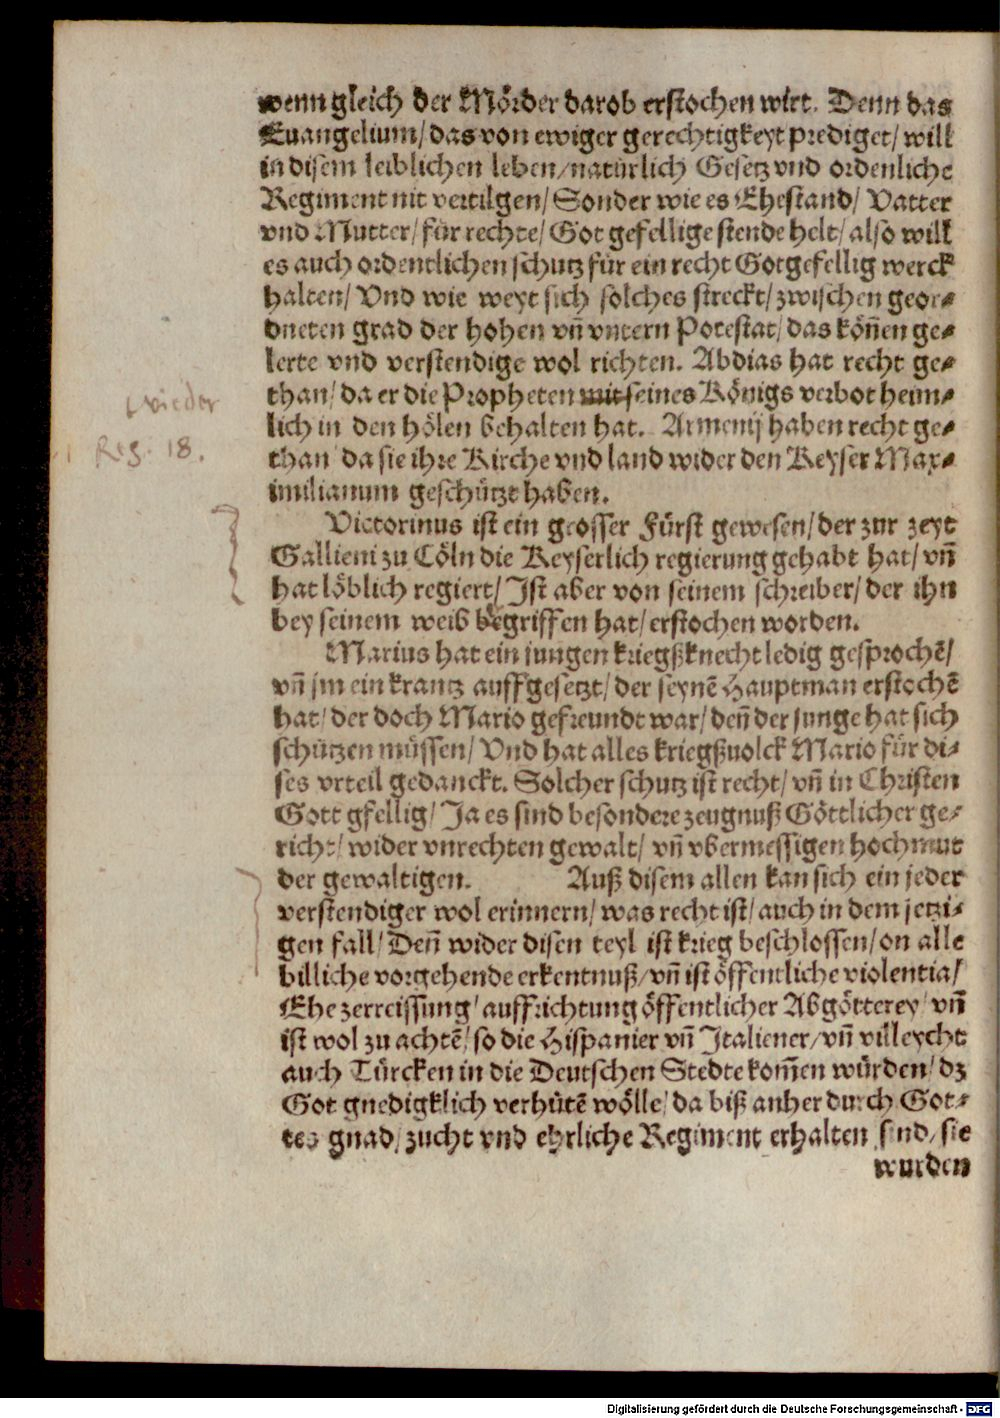 wenn gleich der Mörder darob erstochen wirt. Denn das
Euangelium/ das von ewiger gerechtigkeyt prediget/ will
in disem leiblichen leben/ natürlich Gesetz vnd ordenliche
Regiment nit vertilgen/ Sonder wie es Ehestand/ Vatter
vnd Mutter/ für rechte/ Got gefellige stende helt/ also will
es auch ordentlichen schutz für ein recht Gotgefellig werck
halten/ Vnd wie weyt sich solches streckt/ zwischen geor⸗
dneten grad der hohen vn̄ vntern Potestat/ das kön̄en ge⸗
lerte vnd verstendige wol richten. Abdias hat recht ge⸗
than/ da er die Propheten mit seines Königs verbot heim⸗
wieder
lich in den hölen behalten hat. Armenij haben recht ge⸗
1 Reg. 18.
than/ da sie ihre Kirche vnd land wider den Keyser Max⸗
imilianum geschützt haben.
Victorinus ist ein grosser Fürst gewesen/ der zur zeyt
Gallieni zu Cöln die Keyserlich regierung gehabt hat/ vn̄
hat löblich regiert/ Ist aber von seinem schreiber/ der ihn
bey seinem weib begriffen hat/ erstochen worden.
Marius hat ein jungen kriegßknecht ledig gesprochē/
vn̄ jm ein krantz auffgesetzt/ der seynē Hauptman erstochē
hat/ der doch Mario gefreundt war/ den̄ der junge hat sich
schützen müssen/ Vnd hat alles kriegßuolck Mario für di⸗
ses vrteil gedanckt. Solcher schutz ist recht/ vn̄ in Christen
Gott gfellig/ Ja es sind besondere zeugnuß Göttlicher ge⸗
richt/ wider vnrechten gewalt/ vn̄ vbermessigen hochmut
der gewaltigen. Auß disem allen kan sich ein jeder
verstendiger wol erinnern/ was recht ist/ auch in dem jetzi⸗
gen fall/ Den̄ wider disen teyl ist krieg beschlossen/ on alle
billiche vorgehende erkentnuß/ vn̄ ist öffentliche violentia/
Ehe zerreissung/ auffrichtung öffentlicher Abgötterey/ vn̄
ist wol zu achtē/ so die Hispanier vn̄ Italiener/ vn̄ villeycht
auch Türcken in die Deutschen Stedte kom̄en würden/ dz
Got gnedigklich verhütē wölle/ da biß anher durch Got⸗
tes gnad/ zucht vnd ehrliche Regiment erhalten sind/ sie
wurden
Digitalisierung gefördert durch die Deutsche Forschungsgemeinschaft - DFG